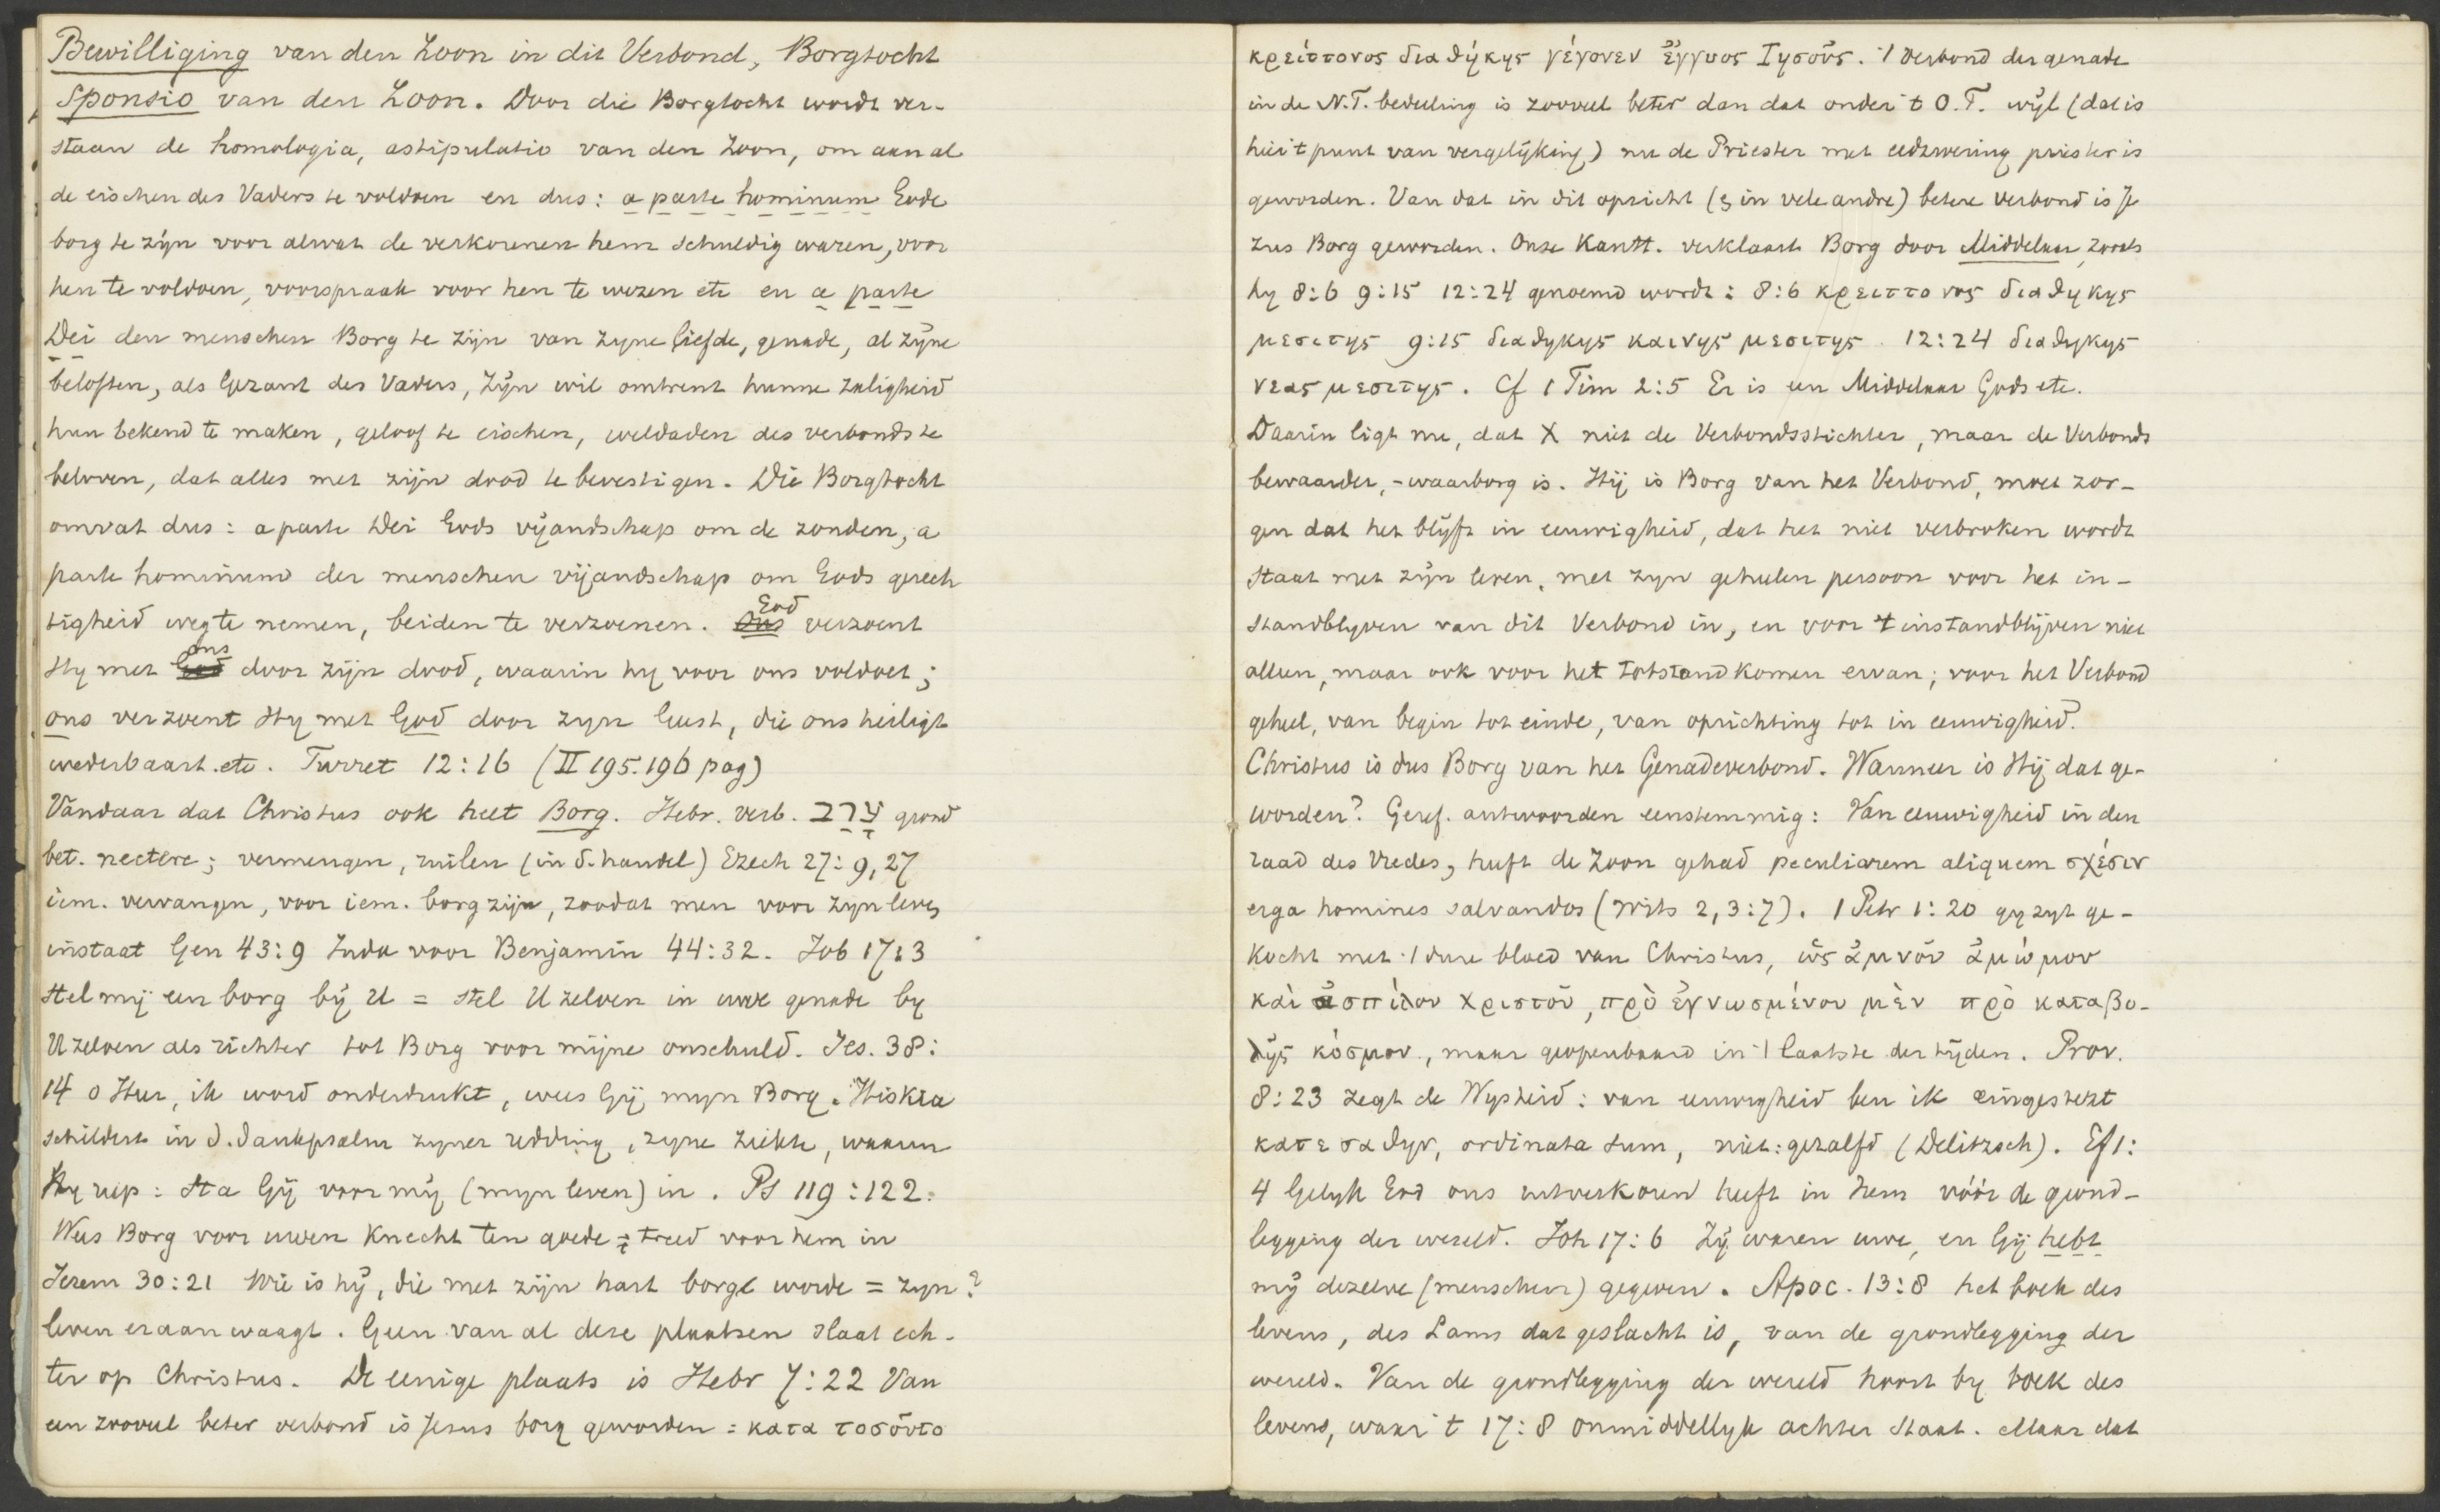 Bewilliging van den Zoon in dit Verbond, Borgtocht
Sponsio van den Zoon. Door die Borgtocht wordt ver-
staan de homologia, astipulatio van den Zoon, om aan al
de eischen des Vaders te voldoen en dus: a parte hominum Gode
borg te zijn voor alwat de verkorenen hem schuldig waren, voor
hen te voldoen, voorspraak voor hen te wezen etc en a parte
Dei den menschen Borg te zijn van zyne liefde, genade, al zyne
beloften, als Gezant des Vaders, Zijn wil omtrent hunne zaligheid
hun bekend te maken, geloof te eischen, weldaden des verbonds te
beloven, dat alles met zijn dood te bevestigen. Die Borgtocht
omvat dus: a parte Dei Gods vijandschap om de zonden, a
parte hominum der menschen vijandschap om Gods gerech
tigheid weg te nemen, beiden te verzoenen. God verzoent
Hy met ons door zijn dood, waarin hy voor ons voldoet;
ons verzoent Hy met God door zyn Geest, die ons heiligt
wederbaart. etc. Turret 12:16 (II 195.196 pag)
Vandaar dat Christus ook heet Borg. Hebr. verb. ערב grond
bet. nectere; vermengen, ruilen (in d. handel) Ezech 27:9,27
iem. vervangen, voor iem. borg zijn, zoodat men voor zyn leven
instaat Gen 43:9 Juda voor Benjamin 44:32. Job 17:3
Stel mij een borg bij U = stel U zelven in uwe genade by
U zelven als richter tot Borg voor mijne onschuld. Jes. 38:
14 o Heer, ik word onderdrukt, wees Gij myn Borg. Hiskia
schildert in d. dankpsalm zyner redding, zyne ziekte, waarin
Hy riep: Sta Gij voor mij (myn leven) in. Ps 119:122:
Wees Borg voor uwen Knecht ten goede = treed voor hem in
Jerem 30:21 Wie is hij, die met zijn hart borge worde = zyn?
leven eraan waagt. Geen van al deze plaatsen slaat ech-
ter op Christus. De eenige plaats is Hebr 7:22 Van
een zooveel beter verbond is Jesus borg geworden: κατα τοσοῦτο
κρείττονος διαθήκης γέγονεν ἔγγυος Ἰησοῦς. 't Verbond der genade
in de N.T. bedeeling is zooveel beter dan dat onder 't O.T. wijl (dat is
hier 't punt van vergelijking) nu de Priester met eedzwering priester is
geworden. Van dat in dit opzicht (& in vele andre) betere verbond is Je
zus Borg geworden. Onze Kantt. verklaart Borg door Middelaar, zooals
hy 8:6 9:15 12:24 genoemd wordt: 8:6 κρειττονος διαθηκης
μεσιτης 9:15 διαθηκης καινης μεσιτης. 12:24 διαθηκης
νεας μεσιτης. Cf 1 Tim 2:5 Er is een Middelaar Gods etc.
Daarin ligt nu, dat X niet de Verbondsstichter, maar de Verbonds
bewaarder, -waarborg is. Hij is Borg van het Verbond, moet zor-
gen dat het blijft in eeuwigheid, dat het niet verbroken wordt
Staat met zijn leven, met zyn geheelen persoon voor het in-
standblyven van dit Verbond in, en voor 't instandblijven niet
alleen, maar ook voor het totstandkomen ervan; voor het Verbond
geheel, van begin tot einde, van oprichting tot in eeuwigheid.
Christus is dus Borg van het Genadeverbond. Wanneer is Hij dat ge-
worden? Geref. antwoorden eenstemmig: Van eeuwigheid in den
raad des Vredes, heeft de Zoon gehad peculiarem aliquem σχέσιν
erga homines salvandos (Wits 2,3:7). 1 Petr 1:20 gy zyt ge-
kocht met 't dure bloed van Christus, ὡς ἀμνοῦ ἀμώμου
καὶ ἀσπίλου Χριστοῦ, πρὸ ἐγνωσμένου μὲν πρὸ καταβο-
λῆς κόσμου, maar geopenbaard in 't laatste der tijden. Prov.
8:23 zegt de Wysheid: van eeuwigheid ben ik eingesetzt
κατεσταθην, ordinata sum, niet: gezalfd (Delitzsch). Ef 1:
4 Gelyk God ons uitverkoren heeft in Hem vóór de grond-
legging der wereld. Joh 17:6 Zij waren uwe, en Gij hebt
mij dezelve (menschen) gegeven. Apoc. 13:8 het boek des
levens, des Lams dat geslacht is, van de grondlegging der
wereld. Van de grondlegging der wereld hoort by boek des
levens, waar 't 17:8 onmiddellyk achter staat. Maar dat